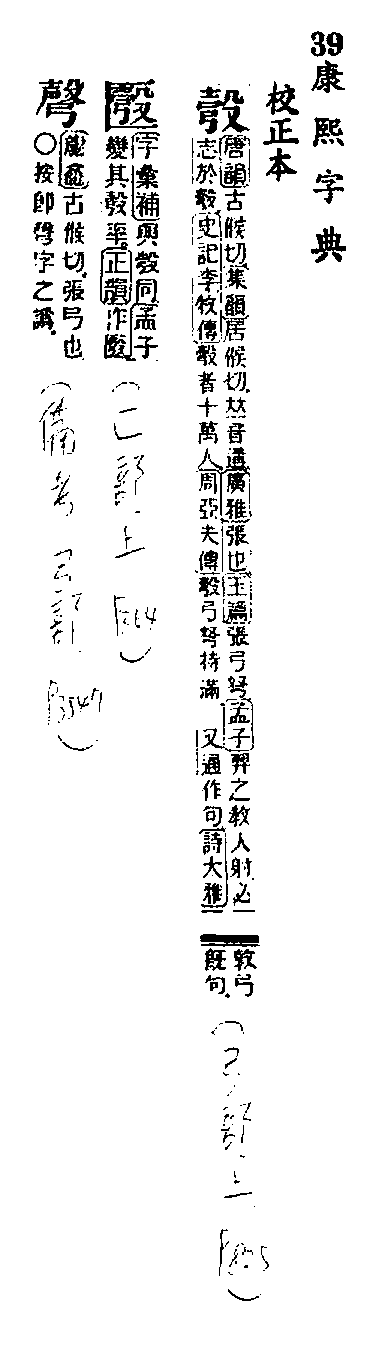 39康熙字典
校正本
彀
唐韻古候切集韻居候切𠀤音遘廣雅張也玉篇張弓弩孟子羿之教人射必
志於彀史記李牧傳彀者十萬人周亞夫傳彀弓弩持滿 又通作句詩大雅
敦弓
既句
部上
字彙補與彀同孟子
變其彀率正韻作
部上
龍龕古候切張弓也
〇按即彀字之譌
(備考 部 P3547)